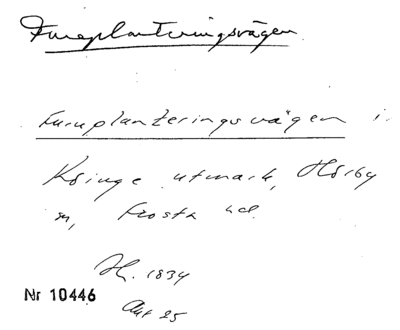 Furuplanteringsvägen
Furuplanteringsvägen i
Kringe utmark, Hörby
sn, Frosta hd.
H. 1834
Akt 25
Nr 10446